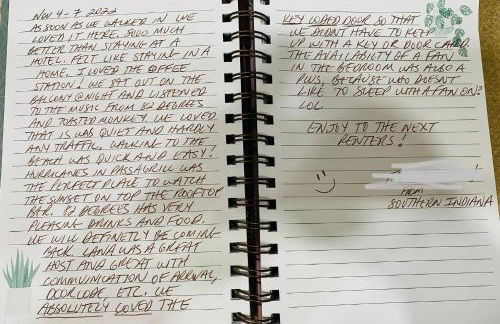 NOV 4-7 2022
AS SOON AS WE WALKED IN WE
LOVED IT HERE. SOOO MUCH
BETTER THAN STAYING AT A
HOTEL. FELT LIKE STAYING IN A
HOME. I LOVED THE COFFEE
STATION! WE SAT OUT ON THE
BALCONY @ NIGHT AND LISTENED
TO THE MUSIC FROM 82 DEGREES
AND TOASTED MONKEY. WE LOVED
THAT IS WAS QUIET AND HARDLY
ANY TRAFFIC. WALKING TO THE
BEACH WAS QUICK AND EASY!
HURRICANES IN PASSAGRILL WAS
THE PERFECT PLACE TO WATCH
THE SUNSET ON TOP THE ROOFTOP
BAR. 82 DEGREES HAS VERY
PLEASING DRINKS AND FOOD.
WE WILL DEFINETLY BE COMING
BACK. LANA WAS A GREAT
HOST AND GREAT WITH
COMMUNICATION OF ARRIVAL,
DOORCODE ETC. WE
ABSOLUTELY LOVED THE
KEY CODED DOOR SO THAT
WE DIDNT HAVE TO KEEP
UP WITH A KEY OR DOOR CARD.
THE AVAILABILITY OF A FAN
IN THE BEDROOM WAS ALSO A
PLUS, BECAUSE WHO DOESN'T
LIKE TO SLEEP WITH A FAN ON?
LOL
ENJOY TO THE NEXT
RENTERS!
FROM
SOUTHERN INDIANA